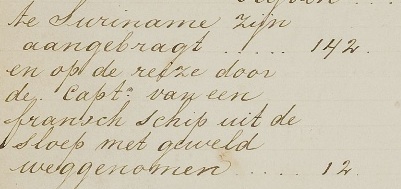 te Suriname zijn
aangebragt ..... 142.
en op de reize door
de Capt: van een
fransch schip uit de
sloep met geweld
weggenomen ..... 12.